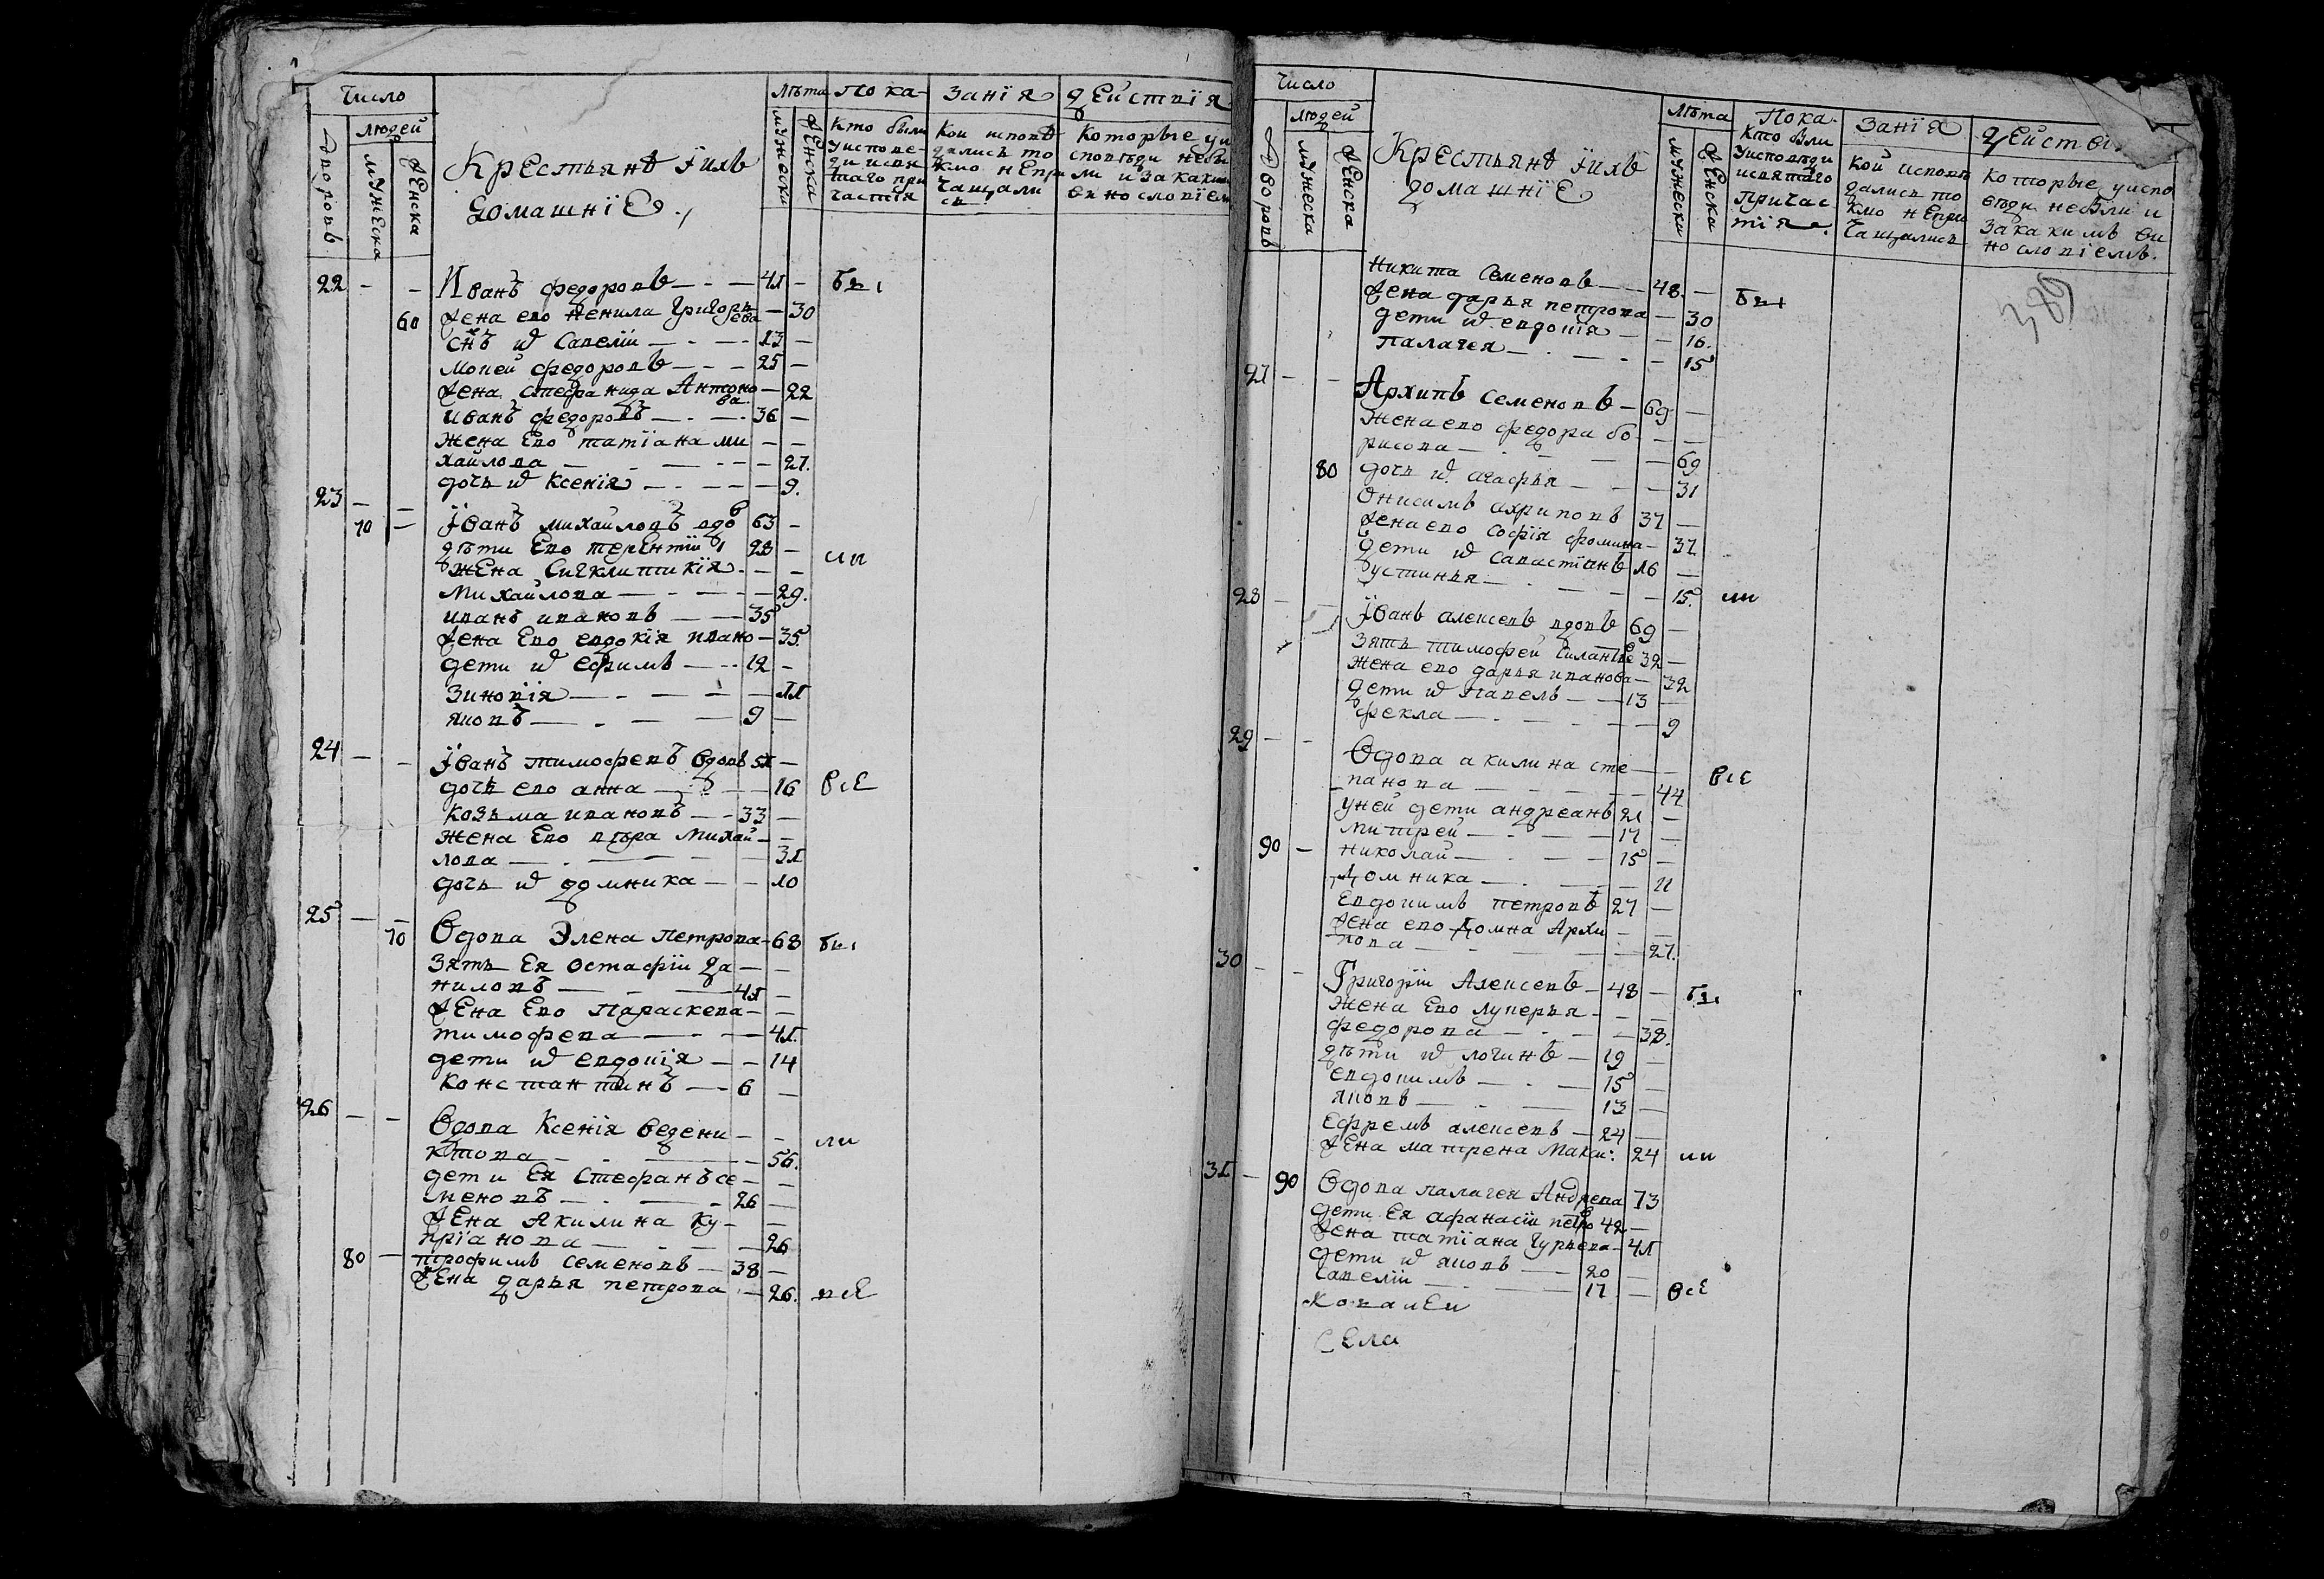 Число
людей
дворовъ
мужеска
женска
Крестьянѣ їихъ
домашнїе
лѣта
мужеска
женска
пока-
занїя
дѣйствїя
Кто были
уиспове-
ди исвя
таго при
частїя
Кои исповѣ
дались то
кмо непри
чащали
сь
Которые уи
сповѣди небы
ли изакаким
винословїем
22 - - Иванъ федоровъ — 41 - бы
60 жена ево ненила Григорьева — 30
снъ ѿ Савелїи — 13 -
мопеи федоровъ — 25 -
жена стефанида Антоно — 22
ва
иванъ федоровъ — 36 -
жена Ево татїана ми - -
хайлова — 27.
дочь ѿ Ксенїя — 9.
23 - -
70 - Їванъ михайловъ вдов 63 -
дѣти Ево терентїи 28 - ли
жена Сигклитикїя - -
Михайлова — 29.
иванъ ивановъ — 35
жена Ево евдокїя ивано — 35.
дети ѿ ефимъ — 12 -
Зиновїя — 11
яковъ — 9 -
24 - - Їванъ тимофеевъ вдовъ 51 -
дочь ево анна — 16 всѣ
козьма ивановъ — 33 -
жена Ево вѣра Михай —
лова — 31
дочь ѿ домника — 10
25 - -
70 Вдова Элена петрова — 68 бы
Зять Ея Остафїи да — -
ниловъ — 41 -
жена Ево Параскева — -
тимофева — 41.
дети ѿ евдокїя — 14
константинъ — 6 -
26 - - Вдова Ксенїя Ведени — - ли
ктова — 56.
дети Ея Стефанъ се — -
меновъ — 26 -
жена Акилина Ку - -
прїанова — 26
80 - трофимъ семеновъ — 38 -
жена дарья петрова — 26. всѣ
Число
людей
дворовъ
мужеска
женска
Крестьянѣ їихъ
домашнїе
лѣта
мужеска
женска
Пока
занїя
дѣйствї
Кто были
уисповѣди
исвятаго
причас-
тїя.
Кои исповѣ
дались то
кмо непри
чащались
которые уиспо
вѣди небыли и
закакимъ ви
нословїемъ.
389
никита Семеновъ — 48. - бы
жена дарья петрова — 30
дети ѿ евдокїя — 16.
палагея — 15
27 - - Архипъ Семеновъ — 69 -
жена ево федора бо- - -
рисова — 69
80 дочь ѿ агафья — 31
Онисимъ ахриповъ 37 -
жена ево софїя фомина — 37
дети ѿ савастїанъ 16 -
устинья — 15. ли
28 - - Їванъ алексевъ вдовъ 69 -
Зять тимофей 32 -
жена ево дарья иванова — 32
дети ѿ павелъ — 13 -
фекла — 9
29 - - Вдова акилина сте — -
панова — 44 всѣ
уней дети андреанъ 21 -
митрей — 17 -
90 - николай — 15 -
домника — 11
Евдокимъ петровъ 27 -
жена ево домна Архи - -
пова — 27.
30 - - Григорїи Алексевъ — 48 - бы
жена Ево лукерья - -
федорова — 38.
дѣти ѿ логинъ — 19 -
евдокимъ — 15 -
яковъ — 13 -
Ефремъ алексевъ — 24 -
жена матрена Макси: 24 ли
31 - 90 Вдова палагея Андрева 73
дети Ея афанасїи петро 42 -
жена татїана гурьева — 41
дети ѿ яковъ — 20 -
савелїи — 17 - всѣ
Ковалеи
Села